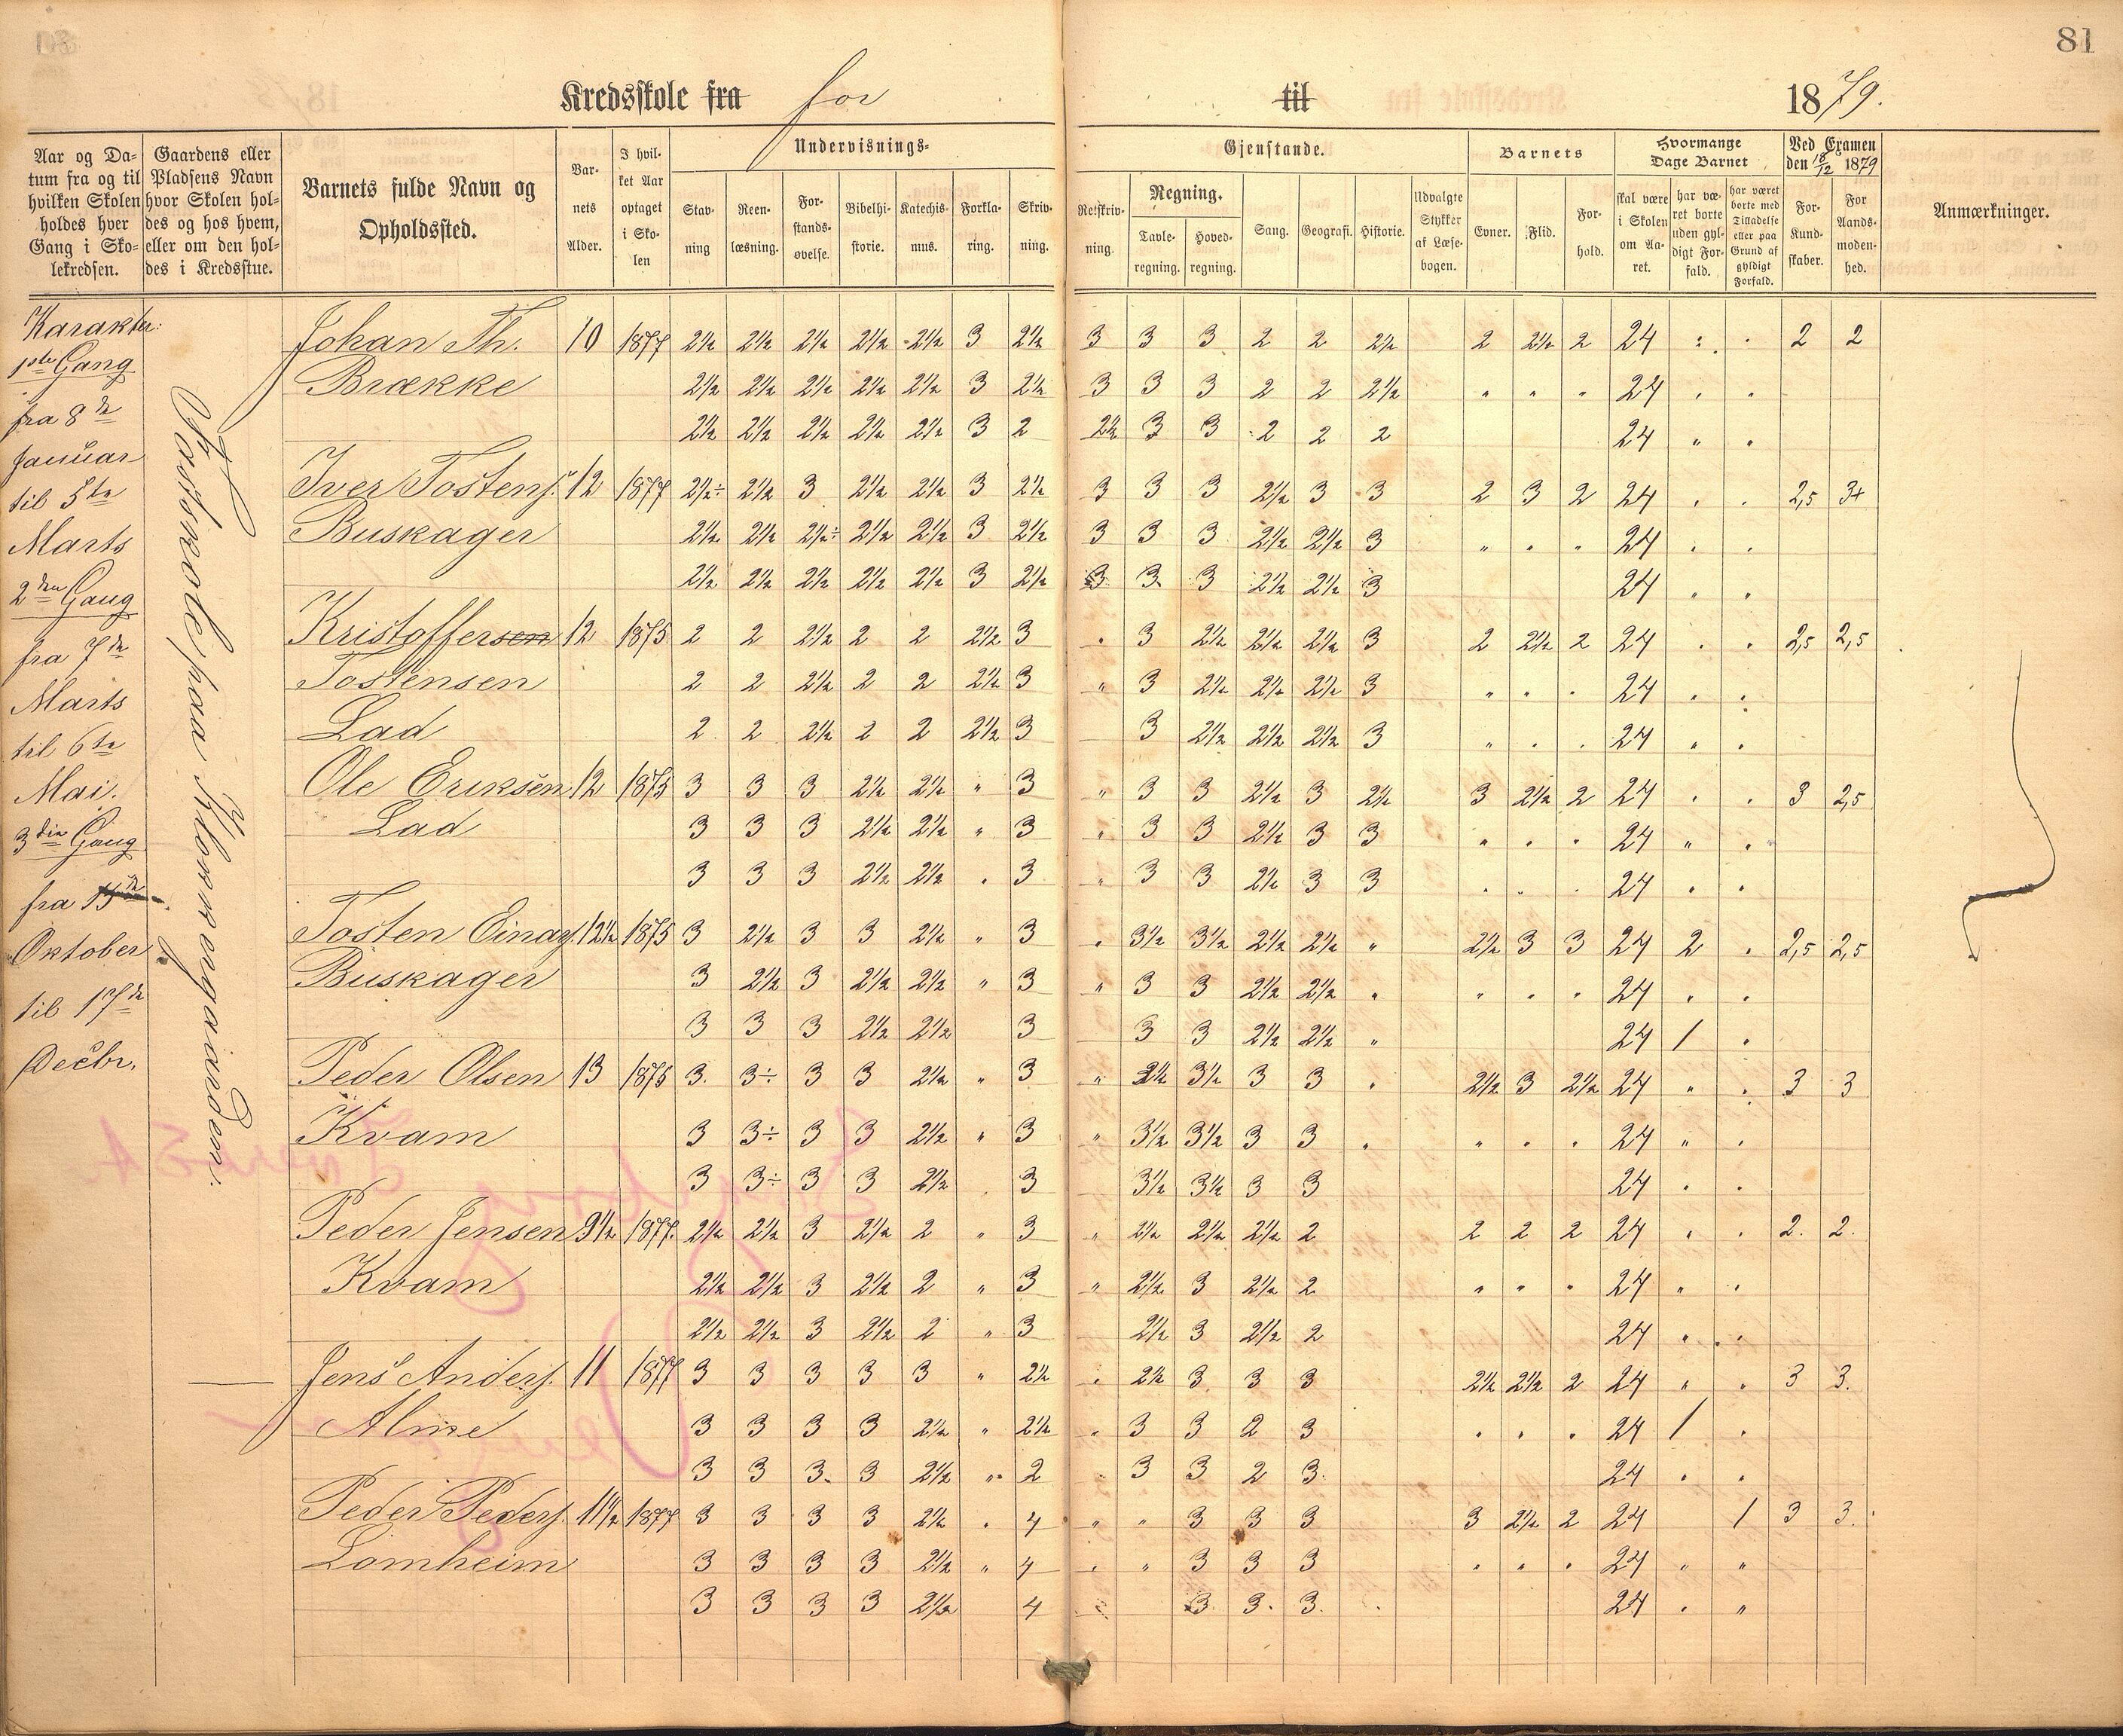 81
Kredsskole fra for til 1879.
Aar og Datum fra og til hvilken Skolen holdes hver Gang i Skolekredsen.
Gaardens eller Pladsens Navn hvor Skolen holdes og hos hvem, eller om den holdes i Kredsstue.
Barnets fulde Navn og Opholdssted.
Barnets Alder.
I hvilket Aar optaget i Skolen
Undervisnings-Gjenstande.
Stavning
Reenlæsning.
Forstandsøvelse.
Bibelhistorie.
Katechismus.
Forklaring.
Skrivning.
Retskrivning.
Regning.
Tavleregning.
Hovedregning.
Sang.
Geografi.
Historie.
Udvalgte Stykker af Læsebogen.
Barnets
Evner.
Flid.
Forhold.
Hvormange Dage Barnet
skal være i Skolen om Aaret.
har været borte uden gyldigt Forfald.
har været borte med Tilladelse eller paa Grund af gyldigt Forfald.
Ved Examen den 18/12 1879
For Kundskaber.
For Aandsmodenhed.
Anmærkninger.
Karakter:
1ste Gang
fra 8de
Januar
til 5te
Marts
2den Gang
fra 7de
Marts
til 6te
Mai.
3die Gang
fra
Oktober
til 17de
Decbr.
Johan Th. 10 1877 2½ 2½ 2½ 2½ 2½ 3 2½ 3 3 3 2 2 2½ 2 2½ 2 24 " " 2 2
Brække 2½ 2½ 2½ 2½ 2½ 3 2½ 3 3 3 2 2 2½ " " " 24 " "
2½ 2½ 2½ 2½ 2½ 3 2 2½ 3 3 2 2 2 24 " "
Iver Tostens. 12 1877 2½÷ 2½ 3 2½ 2½ 3 2½ 3 3 3 2½ 3 3 2 3 2 24 " " 2,5 3+
Buskager 2½ 2½ 2½÷ 2½ 2½ 3 2½ 3 3 3 2½ 2½ 3 " " " 24 " "
2½ 2½ 2½ 2½ 2½ 3 2½ 3 3 3 2½ 2½ 3 24 " "
Kristoffersen 12 1875 2 2 2½ 2 2 2½ 3 " 3 2½ 2½ 2½ 3 2 2½ 2 24 " " 2,5 2,5
Tostensen 2 2 2½ 2 2 2½ 3 " 3 2½ 2½ 2½ 3 " " " 24 " "
Lad 2 2 2½ 2 2 2½ 3 3 2½ 2½ 2½ 3 " " " 24 " "
Ole Eriksen 12 1875 3 3 3 2½ 2½ " 3 " 3 3 2½ 3 2½ 3 2½ 2 24 " " 3 2,5
Lad 3 3 3 2½ 2½ " 3 " 3 3 2½ 3 3 " " " 24 " "
3 3 3 2½ 2½ " 3 " 3 3 2½ 3 3 " " " 24 " "
Tosten Einars. 12½ 1875 3 2½ 3 3 2½ " 3 " 3½ 3½ 2½ 2½ " 2½ 3 3 24 2 " 2,5 2,5
Buskager 3 2½ 3 2½ 2½ " 3 " 3 3 2½ 2½ " " " " 24 " "
3 3 3 2½ 2½ 3 3 3 2½ 2½ " 24 1 "
Peder Olsen 13 1875 3 3÷ 3 3 2½ " 3 " 3½ 3 3 " 2½ 3 2½ 24 " " 3 3
Kvam 3 3÷ 3 3 2½ " 3 " 3½ 3½ 3 3 " " " " 24 " "
3 3÷ 3 3 2½ " 3 3½ 3½ 3 3 24 " "
Peder Jensen 9½ 1877. 2½ 2½ 3 2½ 2 " 3 " 2½ 2½ 2½ 2 2 2 2 24 " " 2. 2.
Kvam 2½ 2½ 3 2½ 2 " 3 " 2½ 3 2½ 2 " " " 24 " "
2½ 2½ 3 2½ 2 " 3 2½ 3 2½ 2 24 " "
Jens Anders. 11 1877 3 3 3 3 3 " 2½ " 2½ 3 3 3 2½ 2½ 2 24 " " 3 3.
Alme 3 3 3 3 2½ " 2½ " 3 3 2 3 " " " 24 1 "
3 3 3 3 2½ " 2 " 3 3 2 3 24 " "
Peder Peders. 11½ 1877 3 3 3 3 2½ " 4 " " 3 3 3 3 2½ 2 24 1 3 3.
Lomheim 3 3 3 3 2½ " 4 " " 3 3 3 " " " 24 " "
3 3 3 3 2½ 4 3 3 3 24 " "